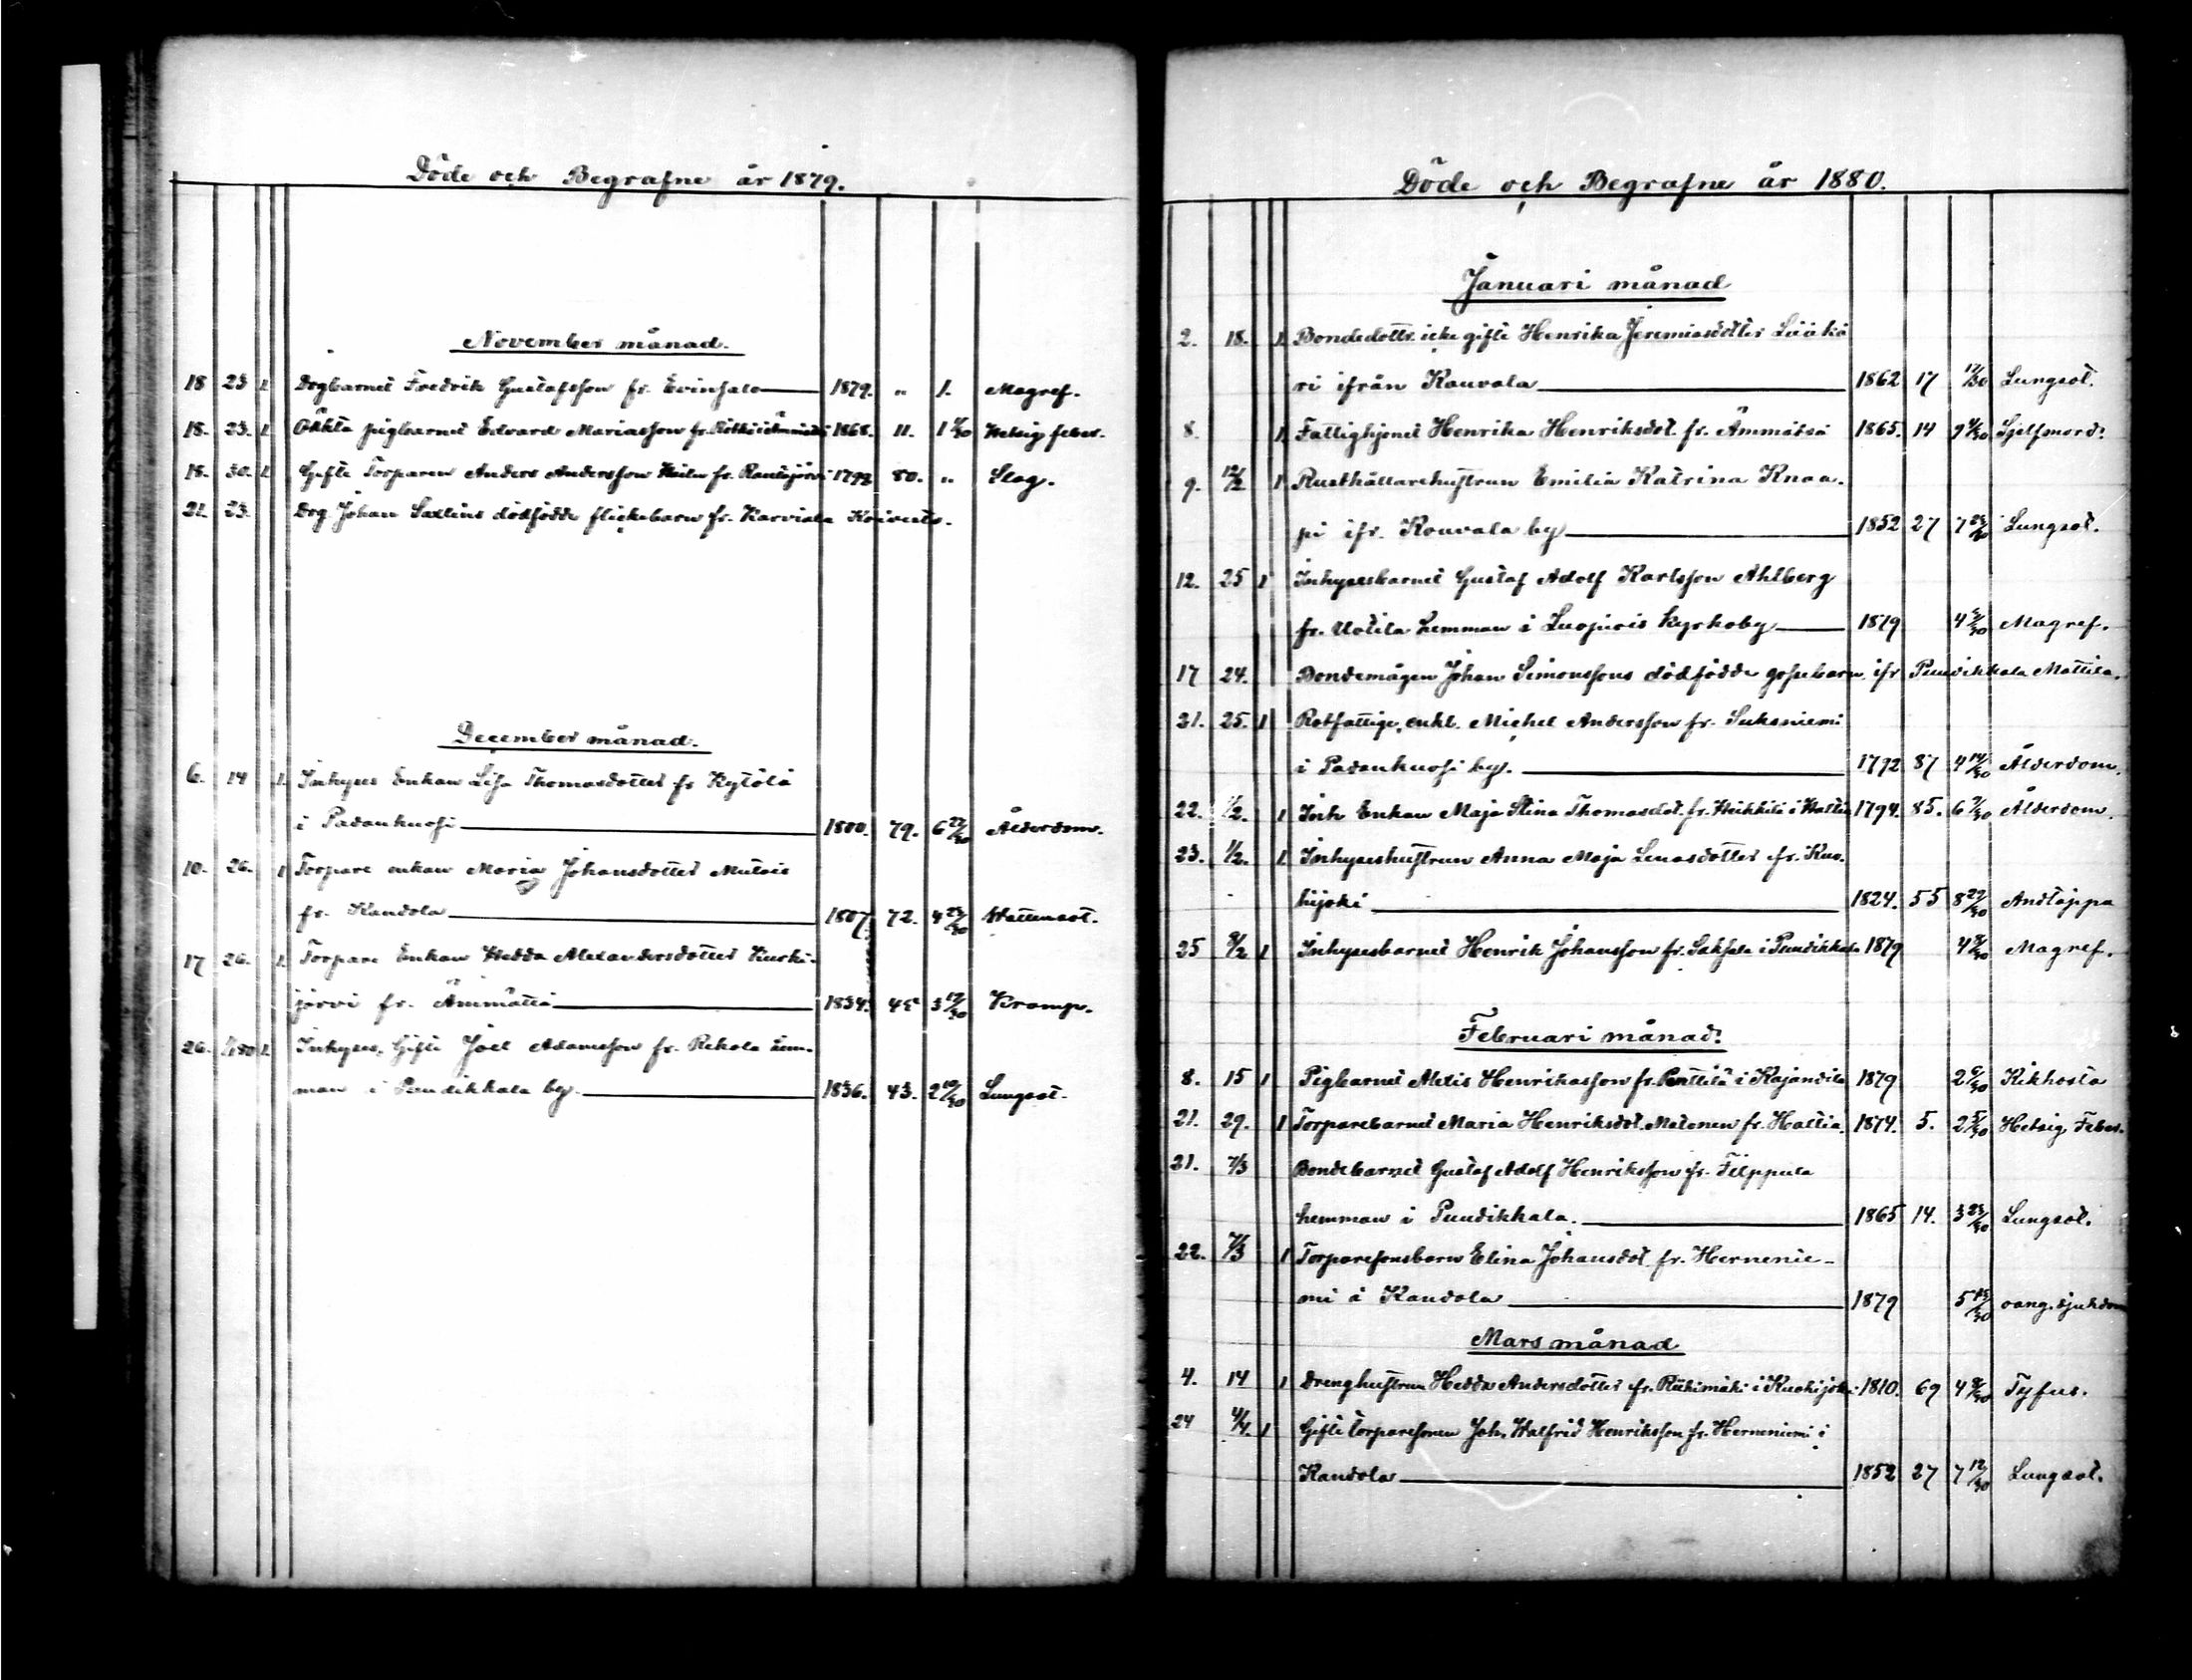 Döde och Begrafne år 1879.
November månad.
18 23 1 Drgbarnet Fredrik Gustafsson fr. Evinsalo 1879. " 1. Magref.
18. 23. 1 Oäkta pigbarnet Edvard Mariasson fr. 1868. 11. Hetsig feber.
18. 30. 1. Gifte Torparen Anders Andersson fr. Rautajärvi 1799 80. " Slag.
21. 23. Drg. Johan dödfödde flickebarn fr. Karviala Koivisto.
December månad.
6. 14 1. Inhyses Enkan Lisa Thomasdotter fr Kytölä
i Padankoski 1800. 79. 6 22/30 Ålderdom.
10. 26. 1 Torpare enkan Maria Johansdotter
fr. Kandola 1807. 72. 4 23/30 Vattensot.
17 26. 1. Torpare Enkan Hedda Alexandersdotter Kurki-
järvi fr. Ämmättä 1834. 45 3 19/30 Kramp.
26. 1/1 80 1. Inhyses, Gifte Joel Adamsson fr. Rekola hem-
man i Puudikkala by. 1836. 43. 2 10/30 Lungsot.
Döde och Begrafne år 1880.
Januari månad
2. 18. 1. Bondedottr. icke gifte Henrika Jeremiasdotter Lääkä
ri ifrån Kouvala 1862 17 17/30 Lungsot.
8. 1. Fattighjonet Henrika Henriksdot. fr. Ämmätsä 1865. 14 Sjelfmord.
9. 12/2 1 Rusthållarehustrun Emilia Katrina Knaa.
pi ifr. Kouvala by 1852 27 7 Lungsot.
12. 25 1 Inhysesbarnet Gustaf Adolf Karlsson Ahlberg
fr. Uotila hemman i Luopiois Kyrkoby 1879 4 Magref.
17 24. Bondemågen Johan Simonssons dödfödde gossebarn, ifr Puudikkala Mattila.
21. 25. 1 Rotfattige, enkl. Michel Andersson fr. Suksniemi
i Padankoski by. 1792 87 4 14/30 Ålderdom.
22. 1/2. 1 Inh Enkan Maja Stina Thomasdot. fr. Heikkilä i Haltia 1794. 85. 6 7/30 Ålderdom.
23. 1/2. 1. Inhyseshustrun Anna Maja Lenasdotter fr. Kuo.
hijoki 1824. 55 8 29/30 Andtäppa
25 8/2 1 Inhysesbarnet Henrik Johansson fr. Saksala i Puudikkala 1879 4 Magref.
Februari månad.
8. 15 1 Pigbarnet Alexis Henrikasson fr. Penttilä i Kajandila 1879 2 Kikhosta
21. 29. 1 Torparebarnet Maria Henriksdot. Matonen fr. Haltia. 1874. 5. 2 5/30 Hetsig Feber.
21. 7/3 Bondebarnet Gustaf Adolf Henriksson fr. Filppula
hemman i Puudikkala. 1865 14. 3 23/30 Lungsot.
22. 7/3 1 Torparesonsbarn Elina Johansdot. fr. Hernenie-
mi i Kandola 1879 5 oang. sjukdom
Mars månad
4. 14 1 Drenghustrun Hedda Andersdotter fr. Riihimäki i Kuohijoki 1810. 69 4 8/30 Tyfus.
24 4/4. 1 Gifte torparesonen Joh. Walfrid Henriksson fr. Herneniemi i
Kandola 1852 27 7 12/30 Lungsot.